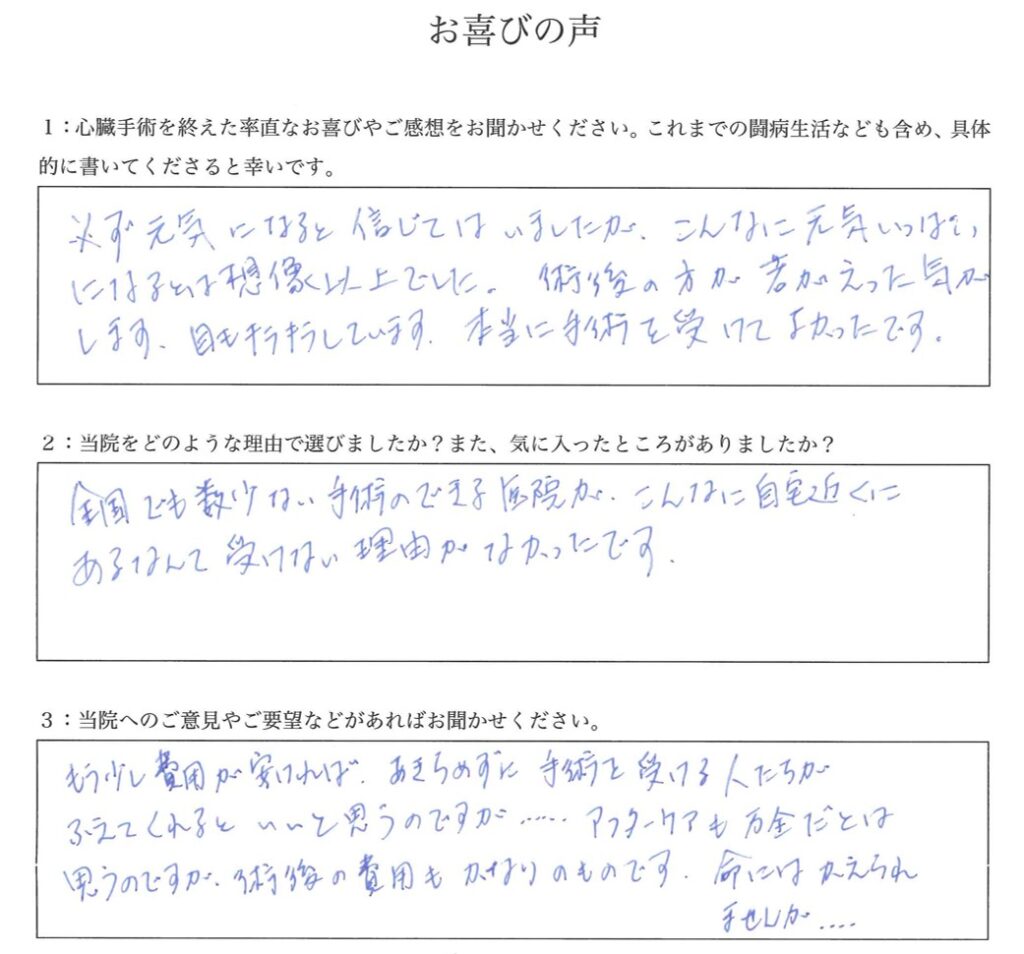 お喜びの声
1：心臓手術を終えた率直なお喜びやご感想をお聞かせください。これまでの闘病生活なども含め、具体
的に書いてくださると幸いです。
必ず元気になると信じてはいましたが、こんなに元気いっぱい
になるとは想像以上でした。術後の方が若がえった気が
します、目もキラキラしています。本当に手術を受けてよかったです。
2：当院をどのような理由で選びましたか？また、気に入ったところがありましたか？
全国でも数少ない手術のできる医院が、こんなに自宅近くに
あるなんて受けない理由がなかったです。
3：当院へのご意見やご要望などがあればお聞かせください。
もう少し費用が安ければ、あきらめずに手術を受ける人たちが
ふえてくれるといいと思うのですが……アフターケアも万全だとは
思うのですが、術後の費用もかなりのものです。命にはかえられ
ませんが….